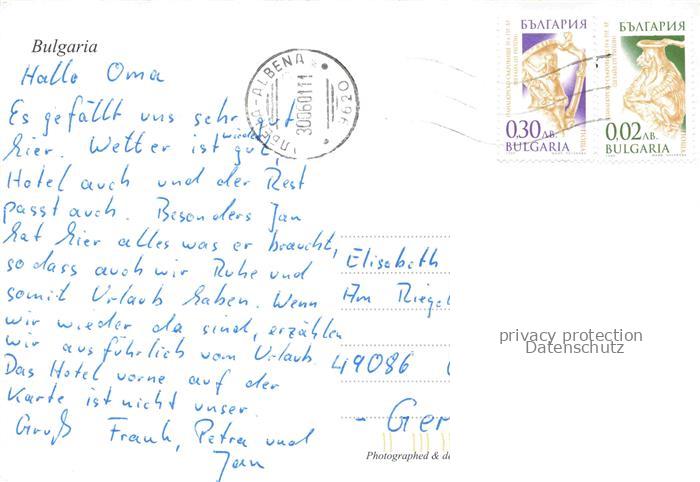 Bulgaria
Hallo Oma
Es gefällt uns sehr gut
hier. Wetter ist wieder gut,
Hotel auch und der Rest
passt auch. Besonders Jan
hat hier alles was er braucht,
so dass auch wir Ruhe und
somit Urlaub haben. Wenn
wir wieder da sind, erzählen
wir ausführlich vom Urlaub.
Das Hotel vorne auf der
Karte ist nicht unser.
Gruß Frank, Petra und
Jan
ALBENA
0296
300601111
БЪЛГАРИЯ
0.30ЛВ.
BULGARIA
БЪЛГАРИЯ
0.02ЛВ.
BULGARIA
Elisabeth
Am Riegel
49086
- Ger
privacy protection
Datenschutz
Photographed & de